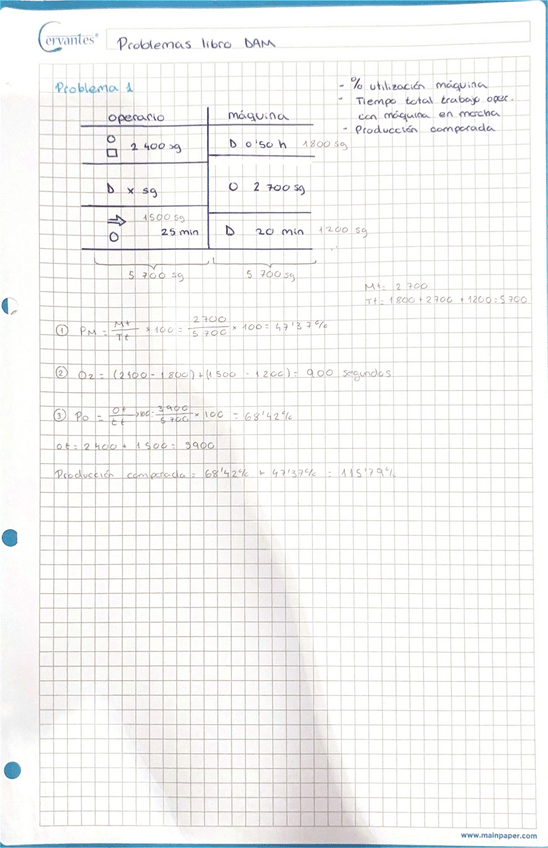 Cervantes®
Problemas libro DAM
Problema 1
- % utilización máquina
- Tiempo total trabajo oper. con máquina en marcha
- Producción comparada
operario máquina
O
□ 2 400 sg D 0'50 h 1800 sg
D x sg O 2 700 sg
⇒ 1500 sg
O 25 min D 20 min 1200 sg
5 700 sg 5 700 sg
Mt: 2 700
Tt: 1800 + 2700 + 1200 = 5700
① PM = Mt/Tt × 100 = 2700/5 700 × 100 = 47'37%
② Oz = (2400 - 1800) + (1500 - 1200) = 900 segundos
③ Po = Ot/tt × 100 = 3900/5700 × 100 = 68'42%
Ot = 2 400 + 1 500 = 3900
Producción comparada = 68'42% + 47'37% = 115'79%
www.mainpaper.com